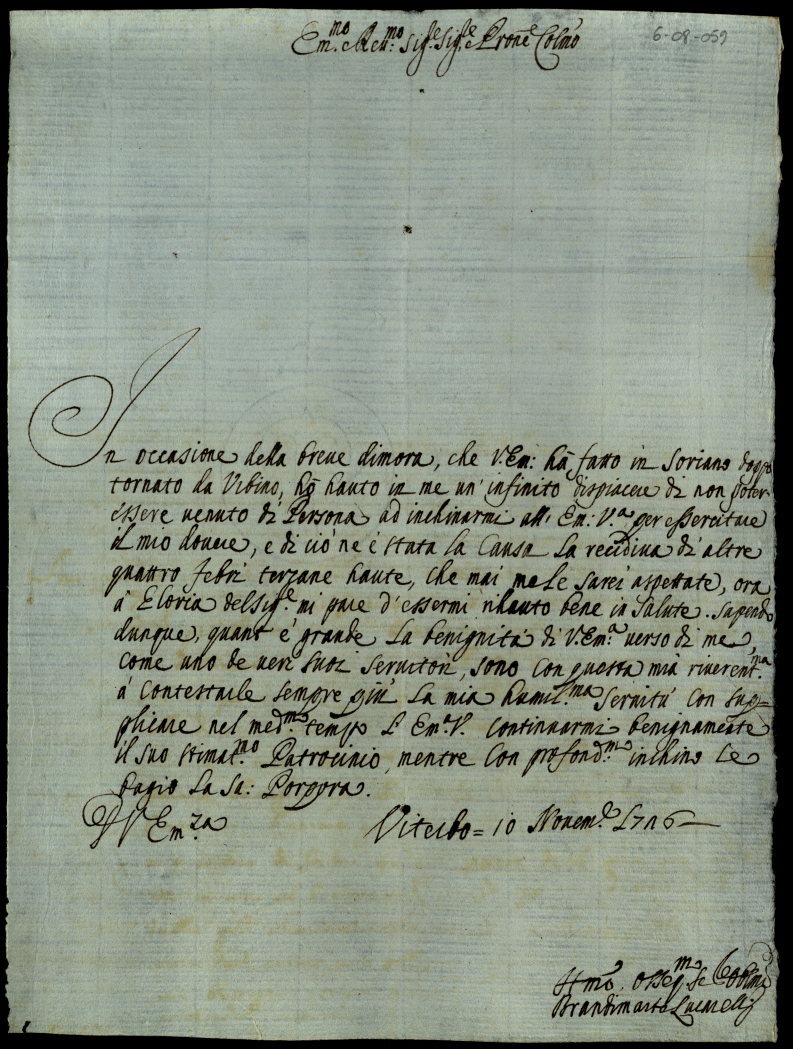 Em.mo e Reu.mo Sig.re Sig.re e Prone Colmo
6-08-059
In occasione della breue dimora, che V. Em: hà fatto in Soriano doppo
tornato da Vrbino, hà hauto in me un' infinito dispiacere di non poter
essere uenuto di Persona ad inchinarmi all' Em: V.a per essercitare
il mio douere, e di ciò ne è stata la Causa la recidiua di altre
quattro febri terzane haute, che mai me le sarei aspettate, ora
à Gloria del Sig.re mi pare d'essermi rihauto bene in Salute. Sapendo
dunque, quant' è grande la benignità di V. Em.a uerso di me,
come uno de ueri suoi seruitori, sono con questa mia riuerent.ma
à contestarle sempre più la mia humil.ma Seruitù con sup=
plicare nel med.mo tempo l' Em.a V. continuarmi benignamente
il suo stimat.mo Patrocinio, mentre con profond.mo inchino le
bagio la Sa: Porpora.
Di V. Em.za
Viterbo = 10 Nouem.e 1716
Hmo, osseq.mo Se
Brandimarte Lucarelli